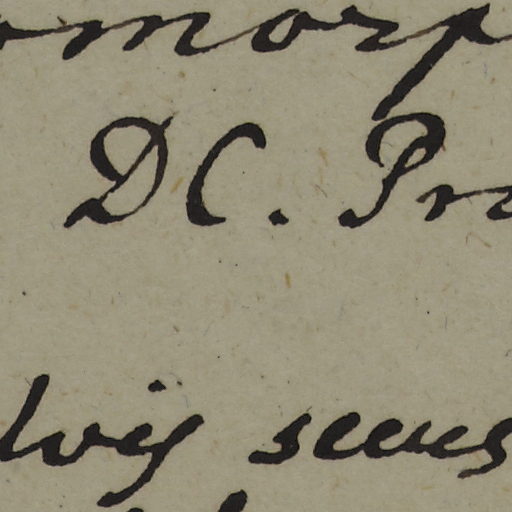 omorp
DC. Pro
lvij seeus